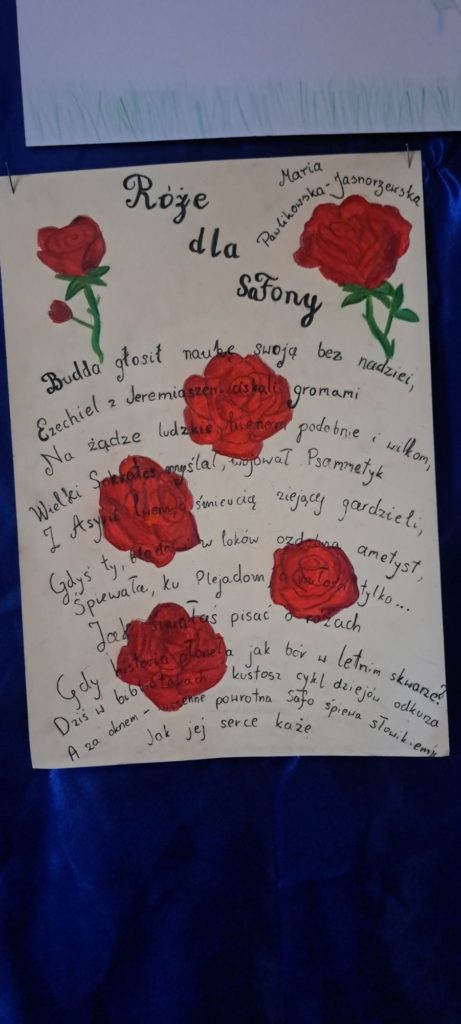 Róże
dla
Safony
Maria
Pawlikowska-Jasnorzewska
Budda głosił naukę swoją bez nadziei,
Ezechiel z Jeremiaszem ciskali gromami
Na żądze ludzkie, hienom podobnie i wilkom,
Wielki Sokrates myślał, wojował Psammetyk
Z Asyrii lwem o śmiercią ziejącej gardzieli,
Gdyś ty, w loków ozdobna ametyst,
Śpiewała, ku Plejadom, o miłości tylko...
Jak śmiałaś pisać o różach
Gdy historia płonęła jak bór w letnim skwarze?
Dziś w bibliotekach kustosz cykl dziejów odkurza
A za oknem - wiosenne powrotna Safo śpiewa słowikiem
Jak jej serce każe